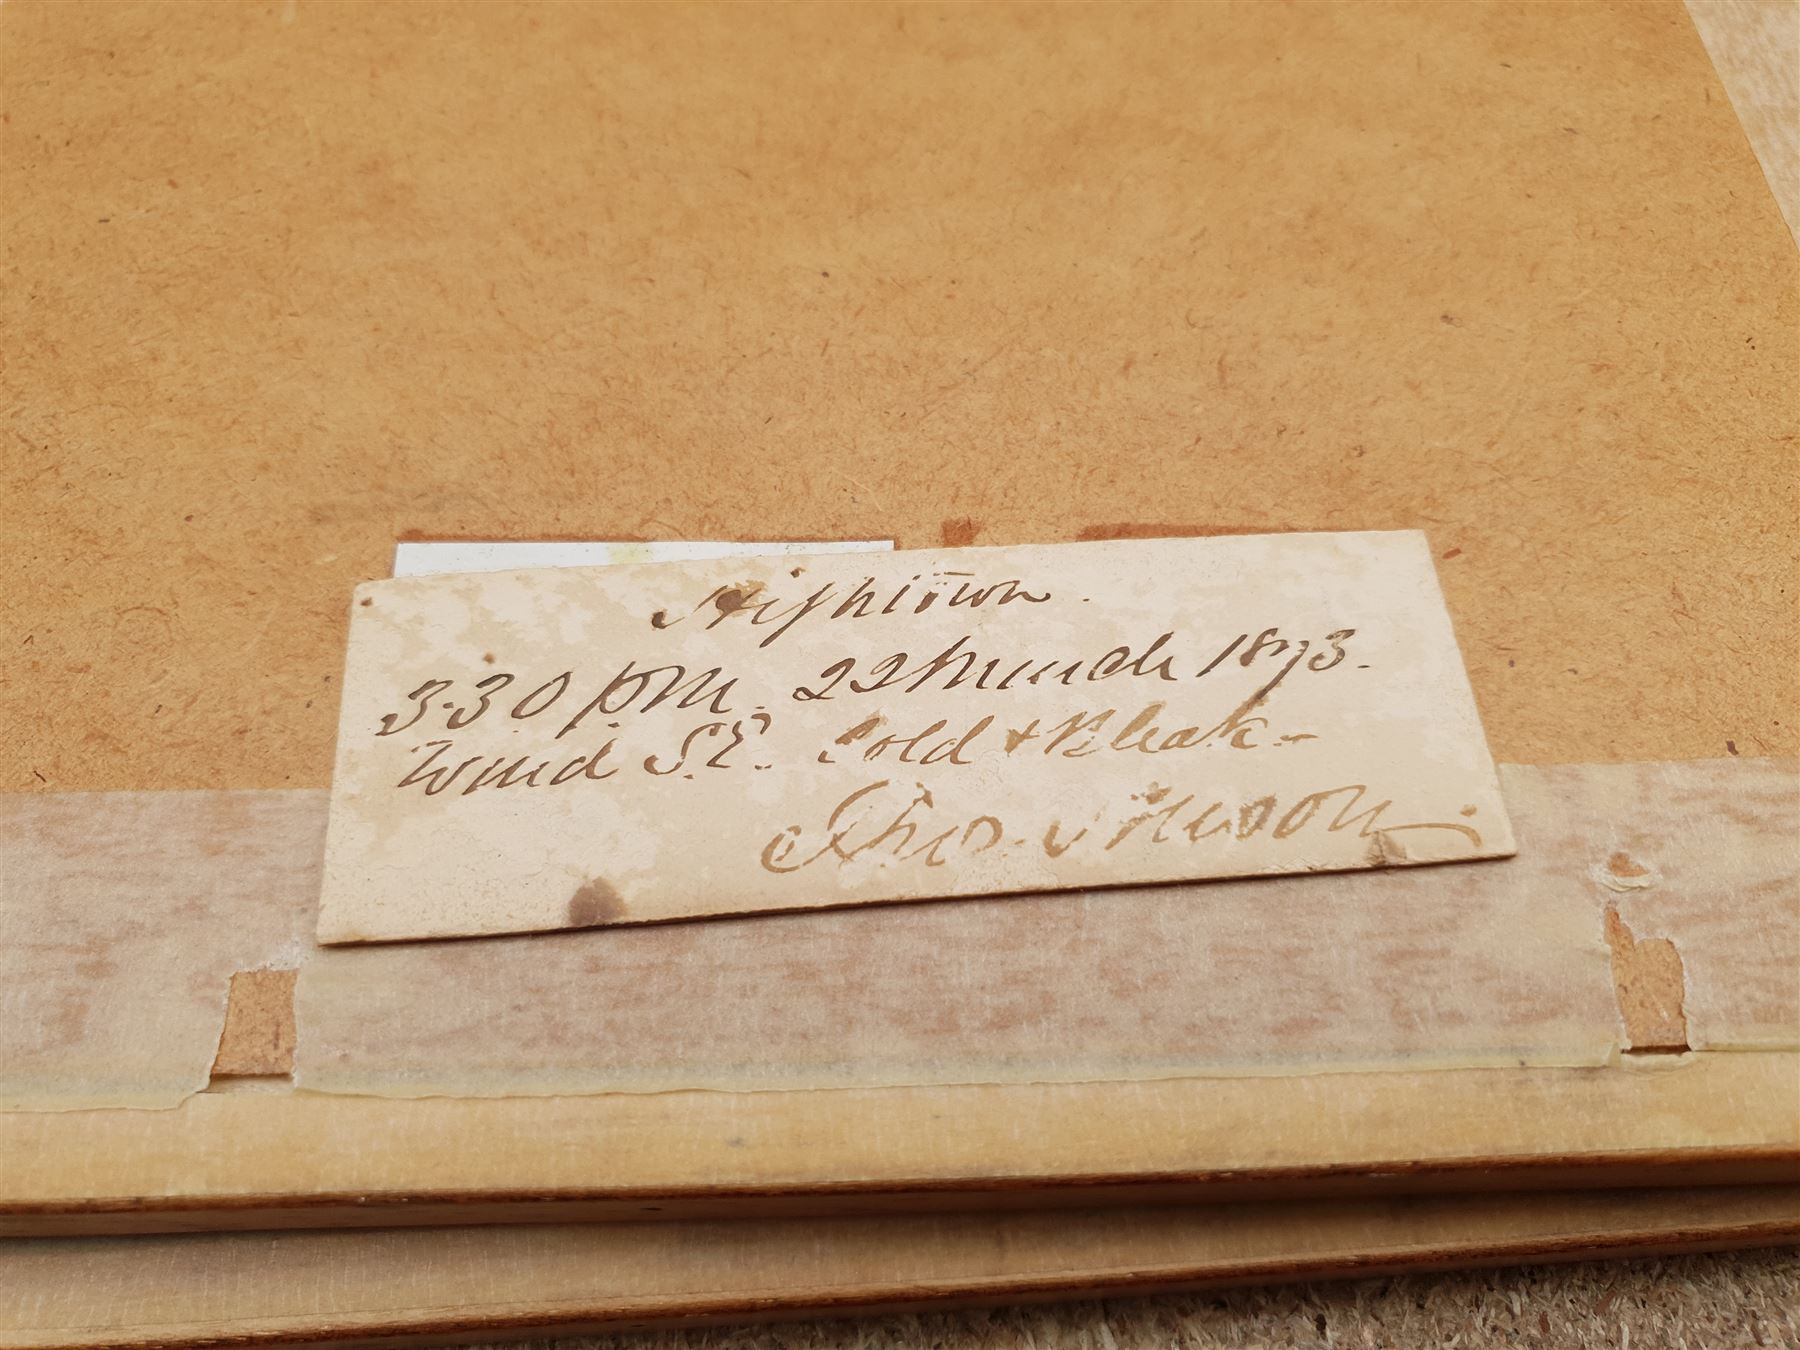 3.30 pm. 22 March 1873.
Wind S.E. Cold & Bleak -
Thos.